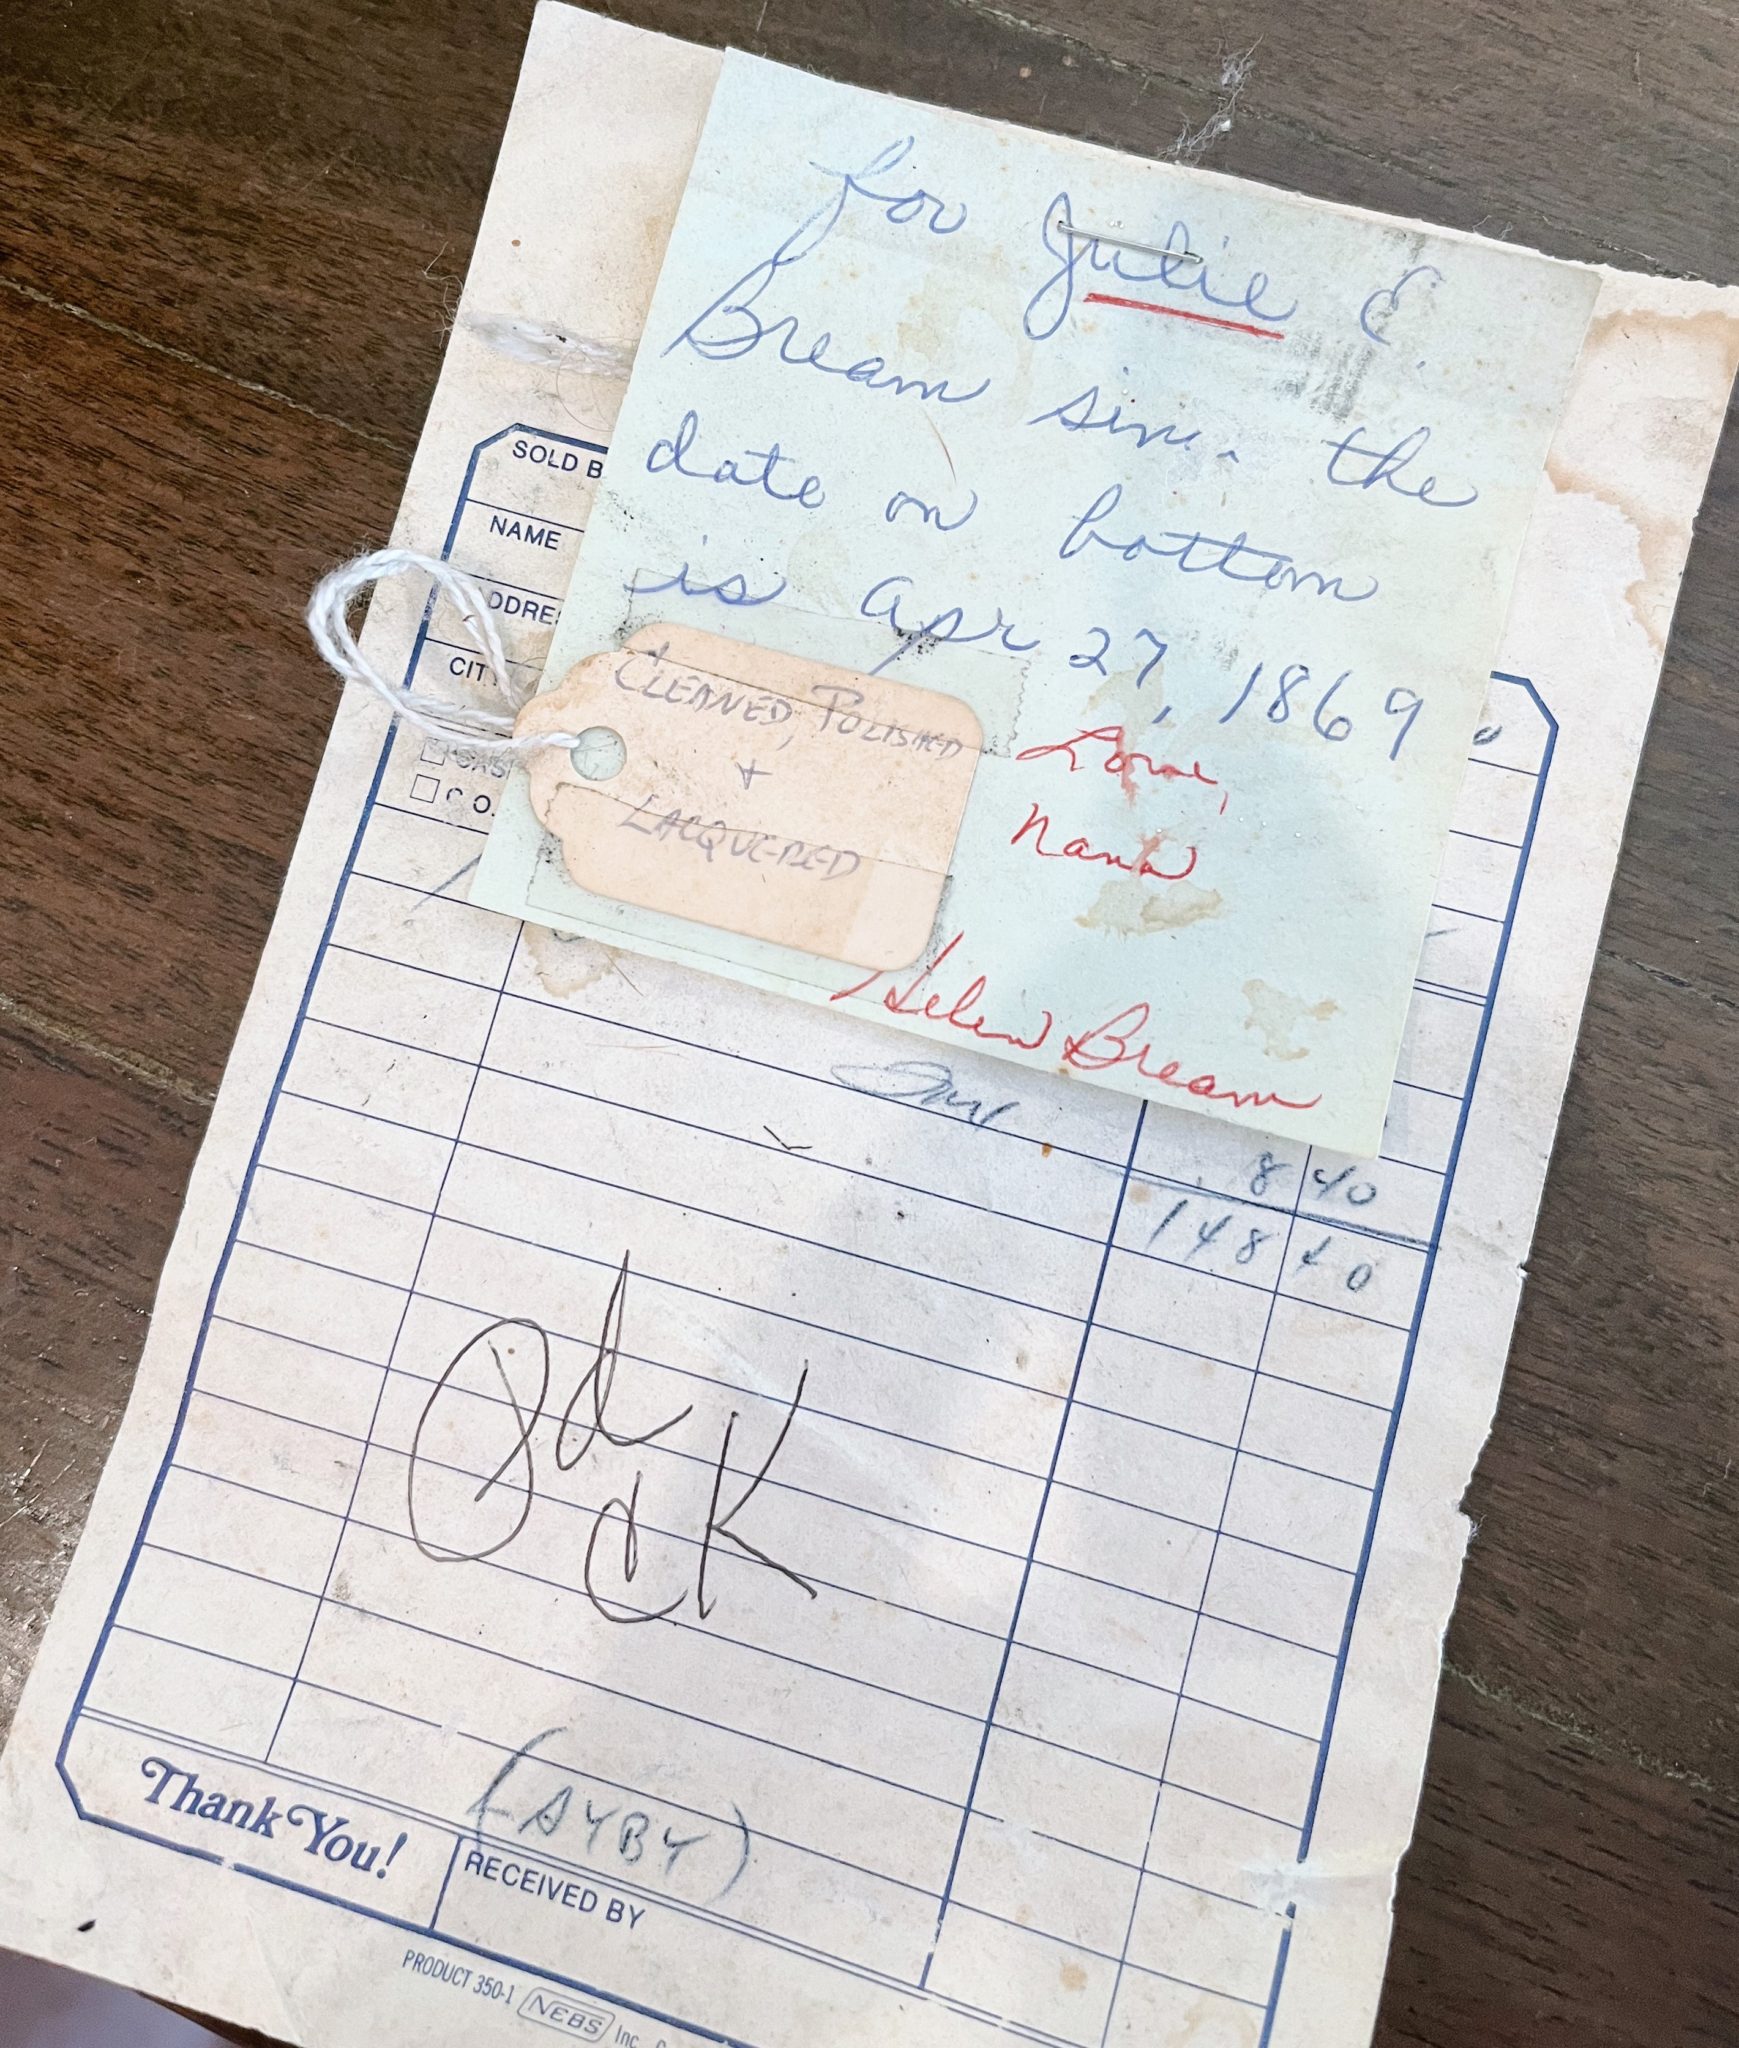 for Julie E.
Bream sin.. the
date on bottom
is Apr 27, 1869
Love,
Nana
Helen Bream
CLEANED, POLISHED
+
LACQUERED
SOLD B
NAME
ADDRES
CIT
CAS
C.O.
8 40
148 40
Pd
CK
(AYBY)
Thank You!
RECEIVED BY
PRODUCT 350-1 NEBS Inc.